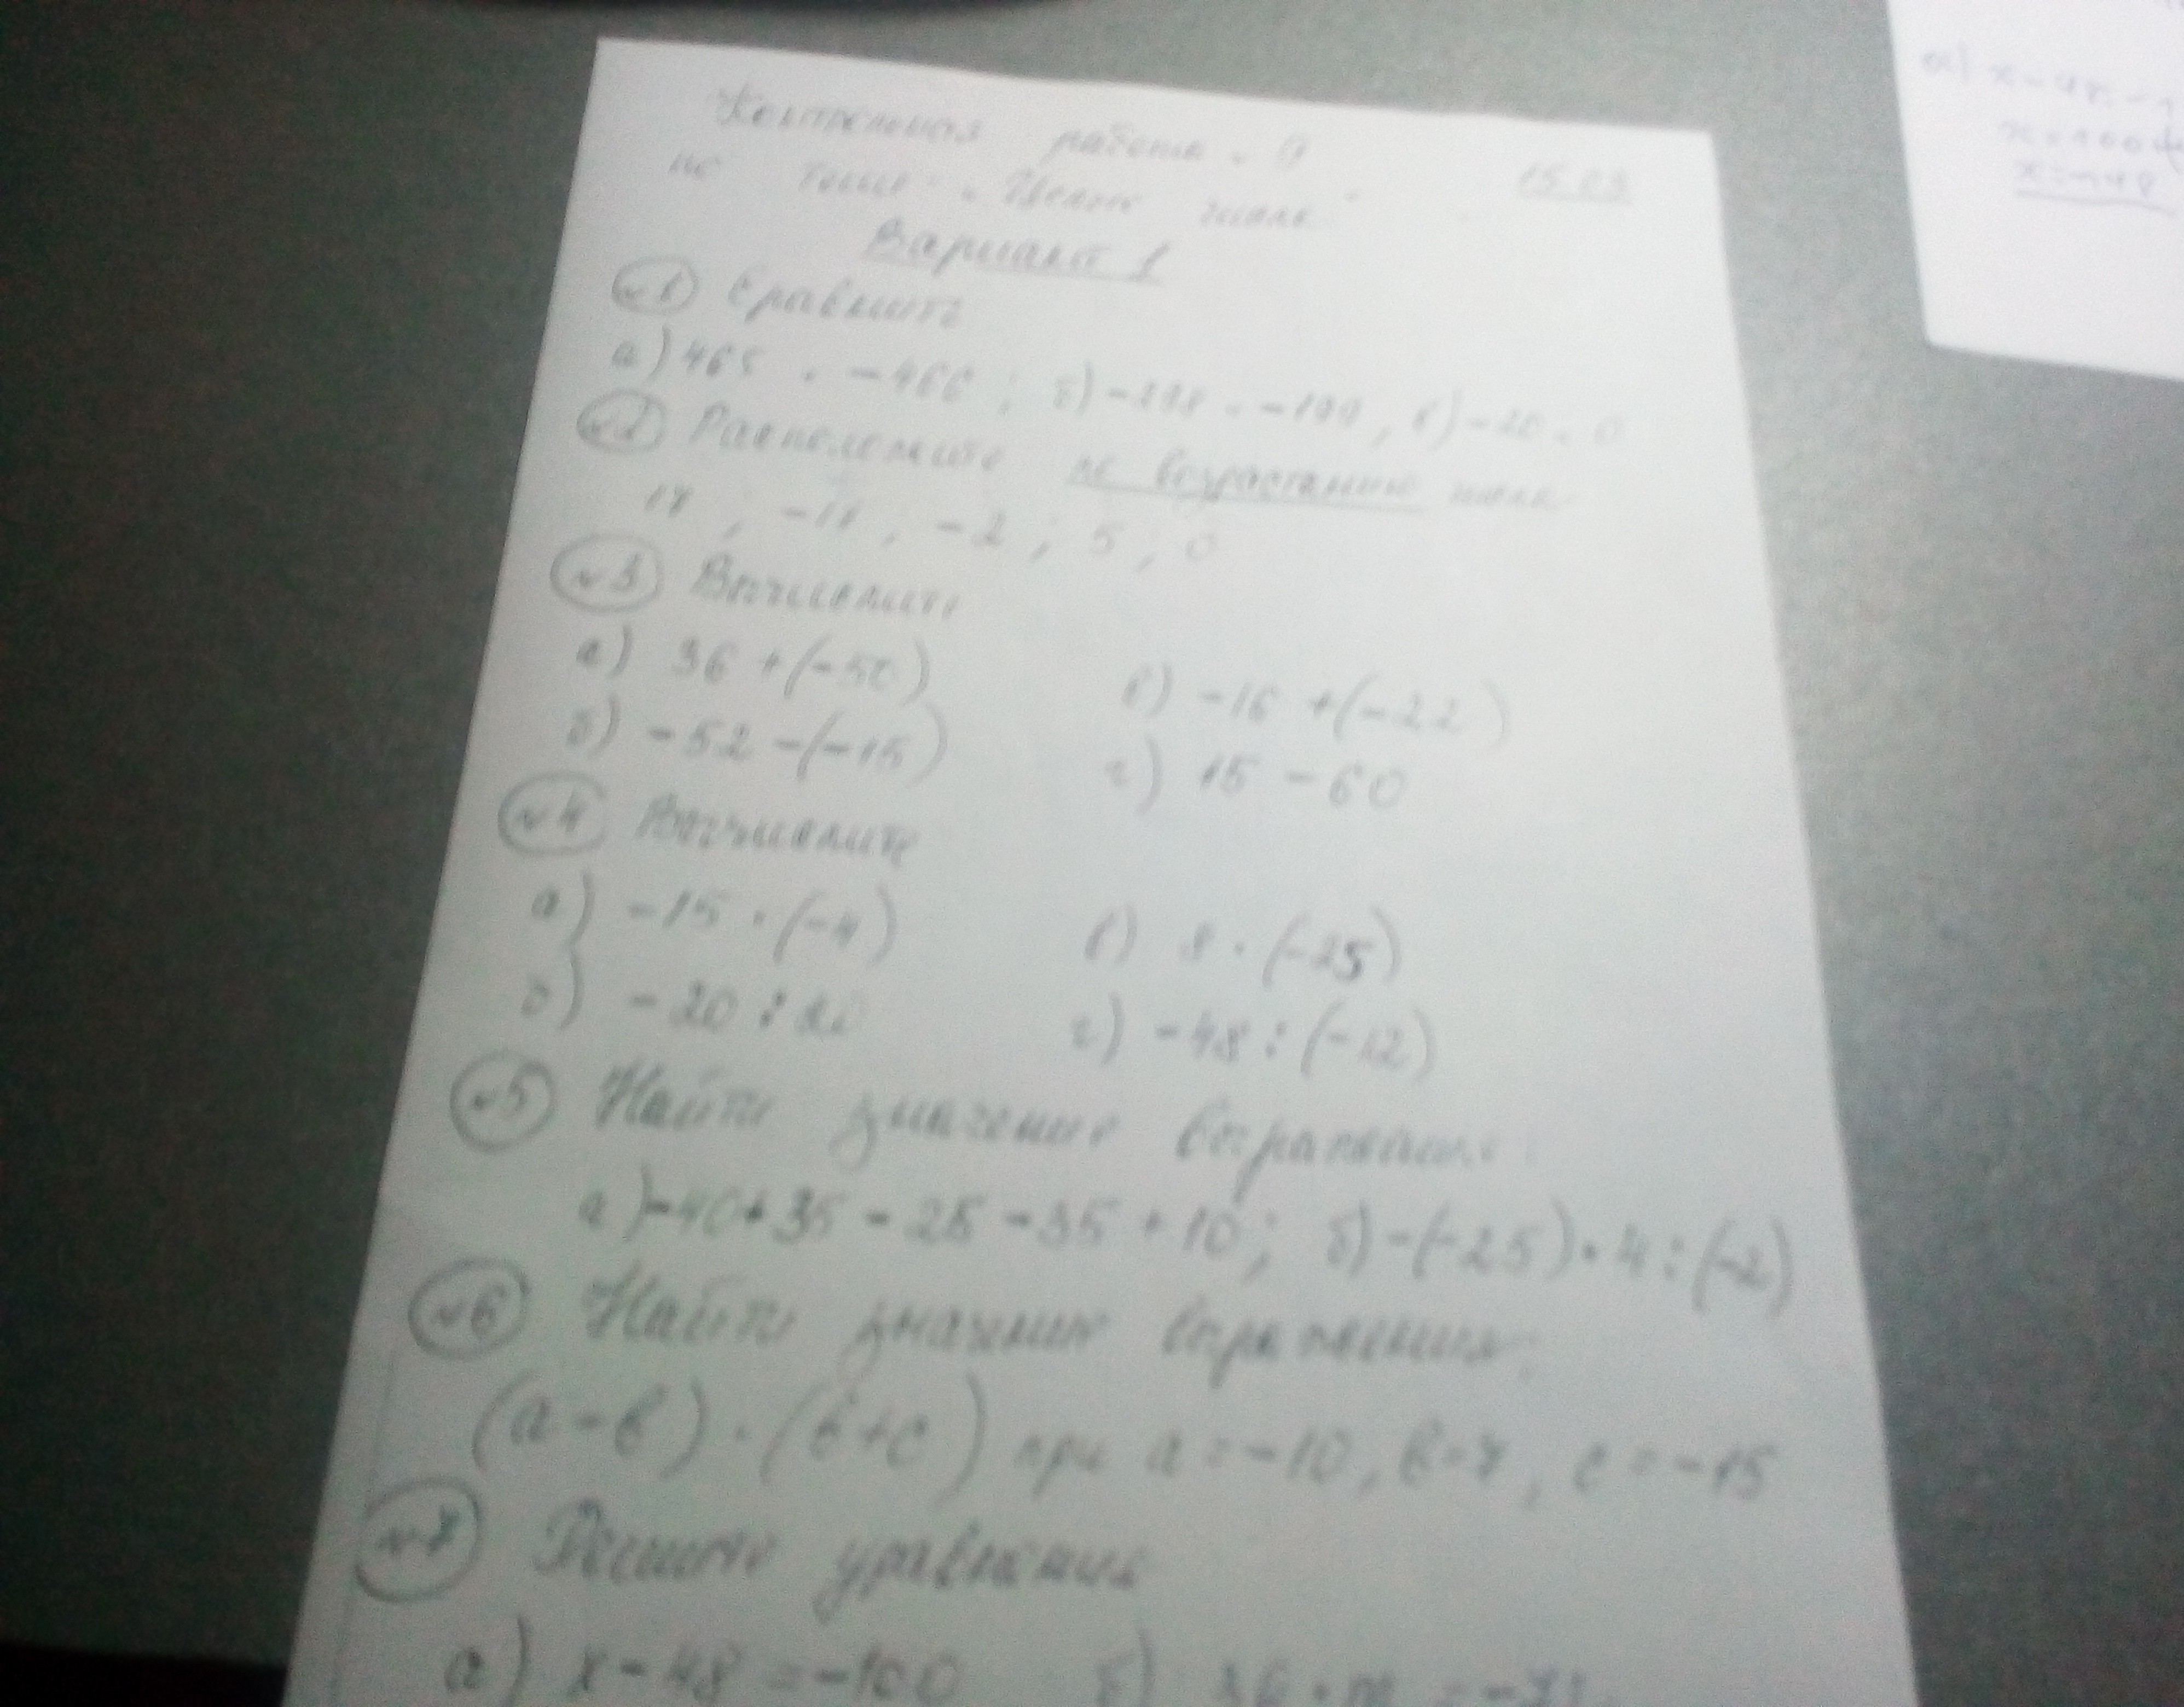 Контрольная работа
по теме „Целые числа“ 15.03
Вариант 1
№1 Сравнить
а) 465 и -466; б) и ; в) -20 и 0
№2 Расположите по возрастанию числа
; ; -2; 5; 0
№3 Вычислите
а) 36 + (-50) в) -16 + (-22)
б) -52 - (-15) г) 15 - 60
№4 Вычислите
а) -15 · (-4) в) 8 · (-25)
б) -20 : г) -48 : (-12)
№5 Найти значение выражения:
а) -40 + 35 - 25 - 35 + 10; б) -(-25) · 4 : (-2)
№6 Найти значение выражения:
(а - в) · (в + с) при а = -10, в = , с = -15
№7 Решите уравнения
а) х - 48 = -100 б)